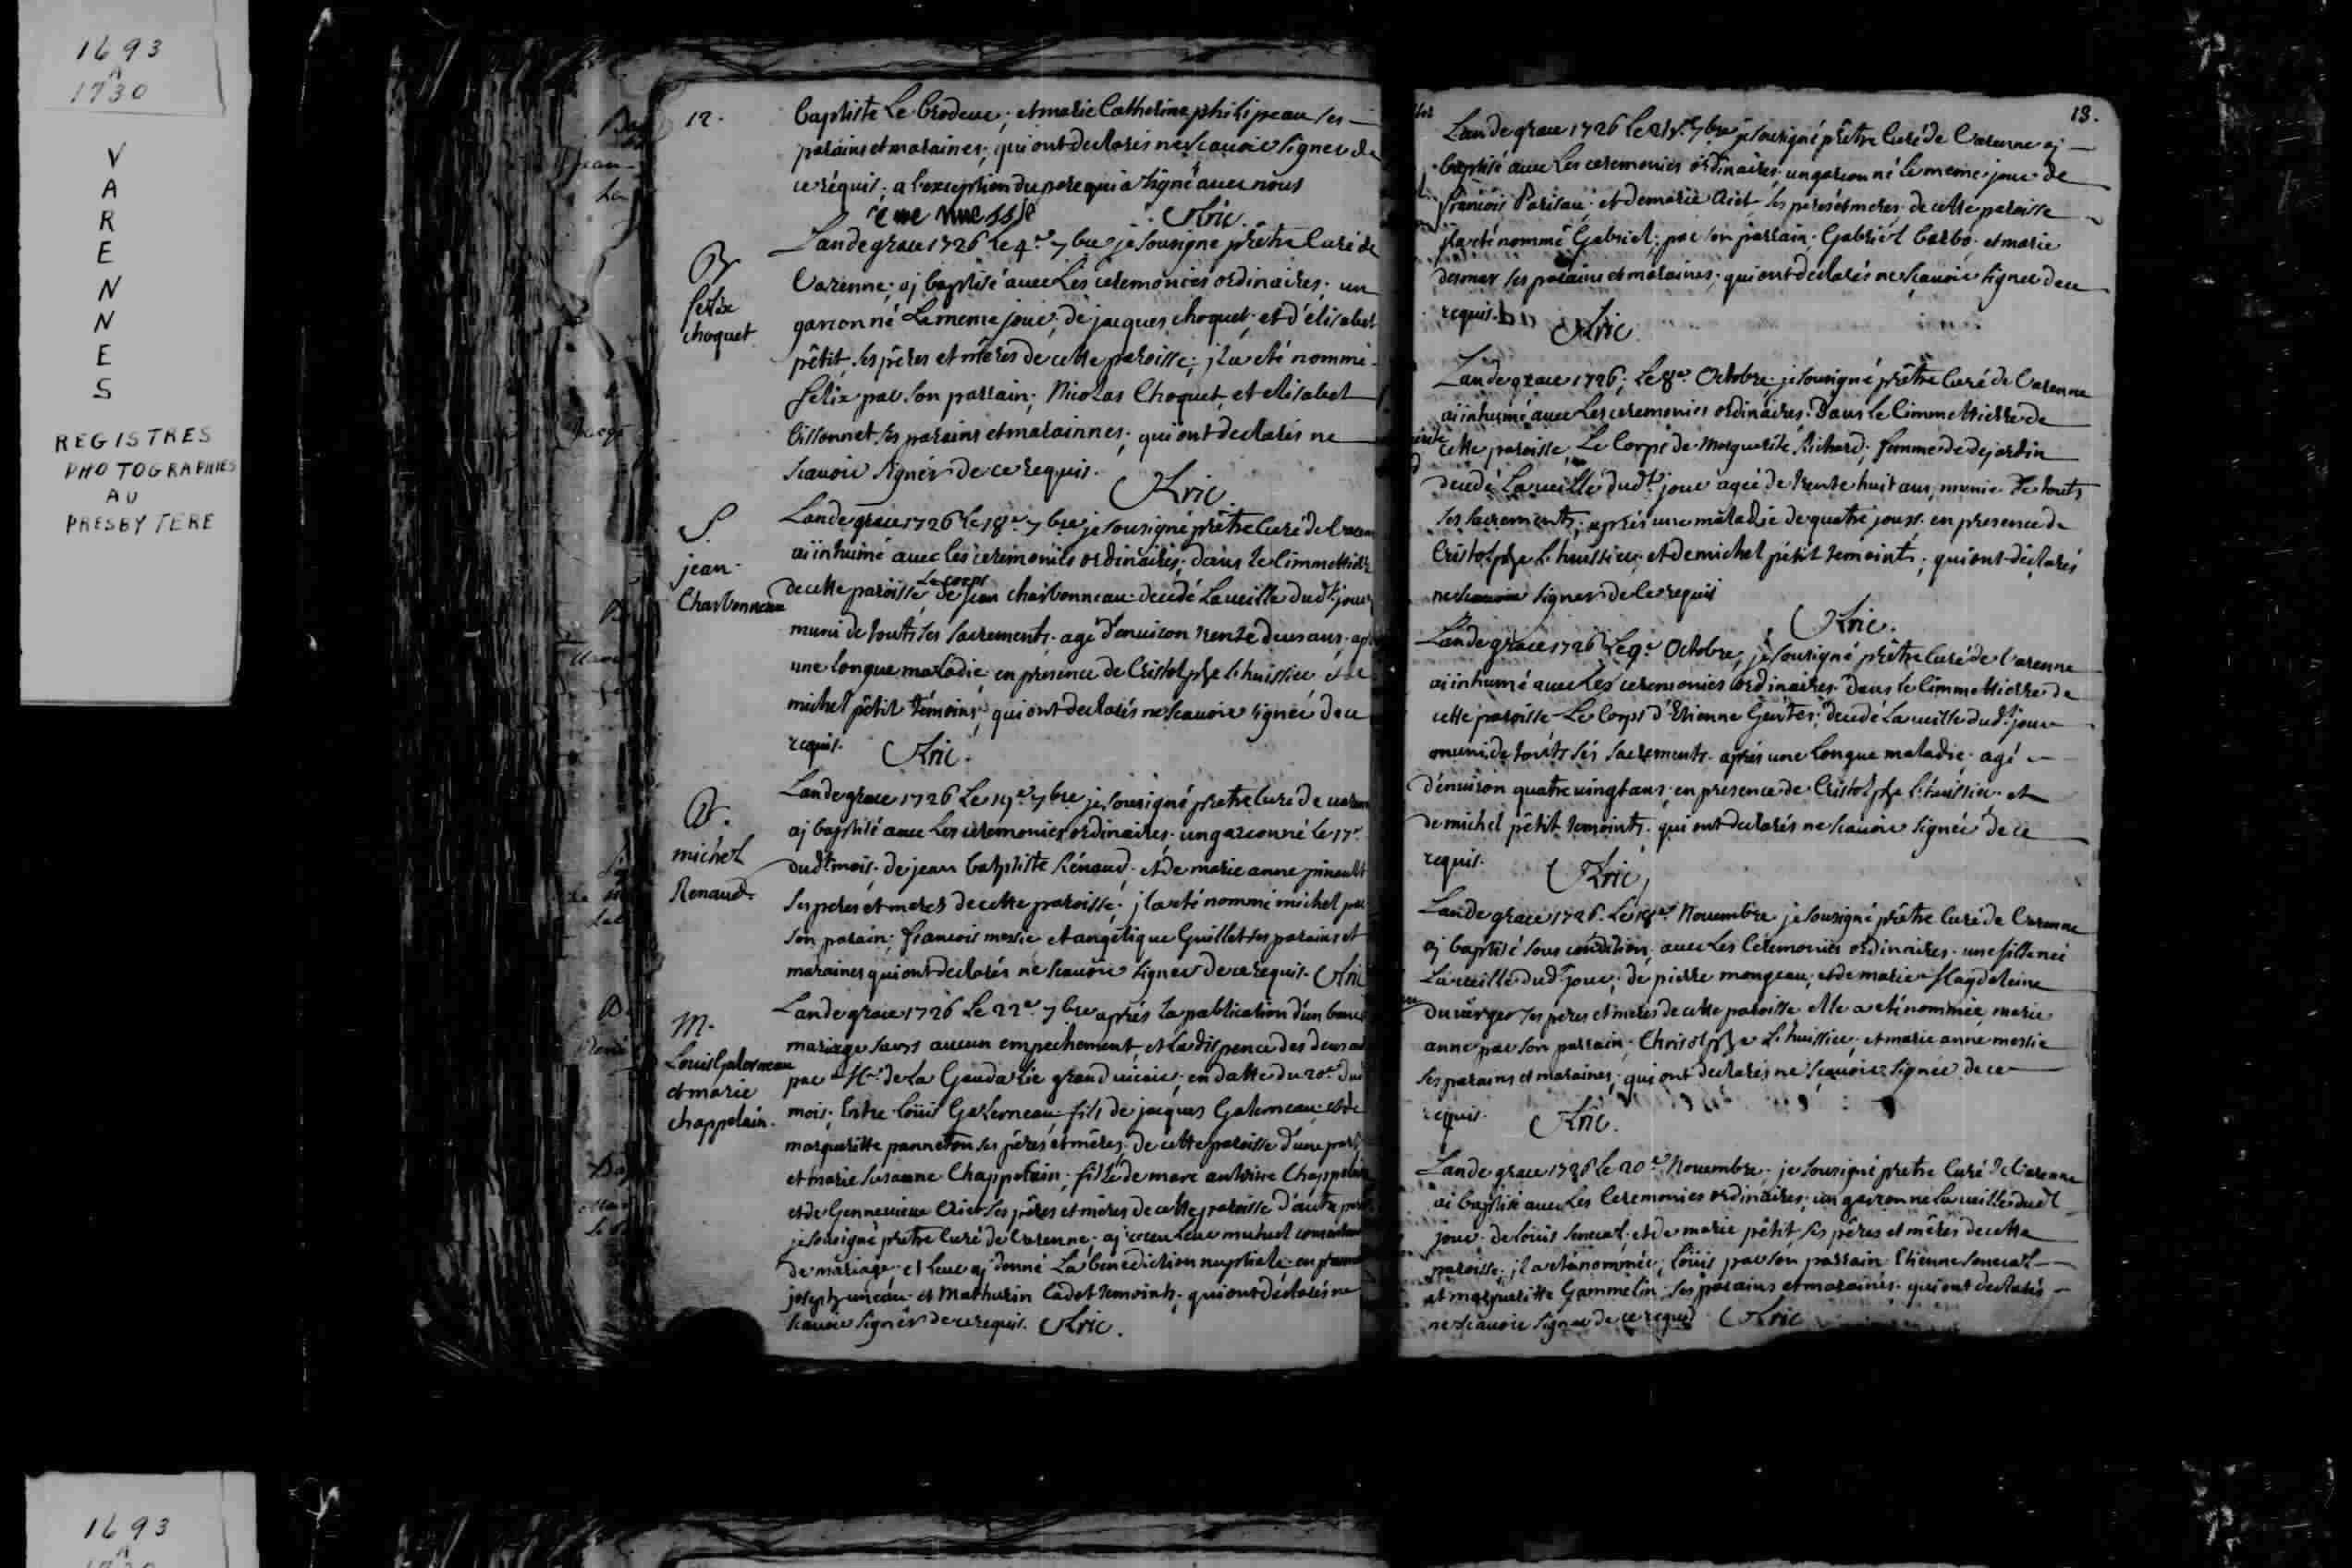 1693
A
1730
V
A
R
E
N
N
E
S
REGISTRES
PHOTOGRAPHIES
AU
PRESBYTERE
12.
baptiste Le brodeur; et marie Catherine philipeau ses
parains et maraines; qui ont declarés ne scauoir signer de
ce réquis; a l'exception du pere qui a signé auec nous
Kric.
B
felix
choquet
Lan de grace 1726 le 4e 7bre je sousigné prêtre Curé de
Varenne; aj baptisé auec Les ceremonies ordinaires; un
garcon né Le meme jour; de jacques choquet; et d'élisabet
pêtit, ses pêres et mêres de cette paroisse; jl a eté nommé
felix par son parrain; Nicolas Choquet, et elisabet
bissonnet ses parains et marainnes; qui ont declarés ne
scauoir signér de ce requis.
Kric.
S
jean
Charbonneau
Lan de grace 1726 le 18e 7bre je sousigné prêtre Curé de
ai inhumé auec les ceremonies ordinaires; dans le Cimmettierre
de cette paroisse Le corps de jean charbonneau decedé La ueille dudt jour
muni de touts ses sacrements; agé d'enuiron trente deus ans;
une longue maladie; en presence de Cristolphe l'huissier et de
michel pêtit témoins; qui ont declarés ne scauoir signée de ce
requis. Kric.
B.
michel
Renaud.
Lan de grace 1726 Le 19e 7bre je sousigné pretre Curé de
aj baptisé auec Les ceremonies ordinaires; un garcon né le 17e
dudt mois; de jean baptiste Rénaud; et de marie anne pinault
ses peres et meres de cette paroisse; jl a eté nommé michel par
son parain; francois messie et angélique Guillet ses parains et
maraines qui ont declarés ne scauoir signer de ce requis. Kric
M.
Louis Galerneau
et marie
chappelain.
Lan de grace 1726 Le 22e 7bre aprés la publication d'un banc
mariage sans aucun empechement, et La dispence des deus
par Mr de La Goudalie grand uicaire; en datte du 20e
mois; Entre Loüis Galerneau fils de jacques Galerneau et de
margueritte panneton ses pêres et mêres; de cette paroisse d'une part
et marie susanne Chappelain; fille de marc antoine Chappelain
et de Genneuieue Ses pêres et mêres de cette paroisse d'autre part
je sousigné prêtre Curé de Varenne; aj receu Leur mutuel
de mariage; et leur aj donné La bénédiction nuptiale; en
joseph et Mathurin Cadet temoints; qui ont déclarés ne
scauoir signér de ce requis. Kric.
13.
Lan de grace 1726 le 7bre je sousigné prêtre Curé de Varenne aj
baptisé auec Les ceremonies ordinaires; un garcon né le meme jour de
francois et de marie Ses peres et meres; de cette paroisse
jl a eté nommé Gabriel; par son parrain; Gabriel et marie
ses parains et maraines; qui ont declarés ne scauoir signer de ce
requis. Kric.
Lan de grace 1726; Le 8e Octobre; je sousigné prêtre Curé de Varenne
ai inhumé auec Les ceremonies ordinaires; Dans le Cimmettierre de
cette paroisse, Le Corps de Marguerite Richard; femme de dejardin
decedé La ueille dudt jour agée de trente huit ans; munie de touts
ses sacrements; aprés une maladie de quatre jours; en presence de
Cristolphe L'huissier; et de michel pêtit temoints; qui ont déclarés
ne scauoir signer de ce requis
Kric.
Lan de grace 1726 Le 9e Octobre; je sousigné prêtre Curé de Varenne
ai inhumé auec Les ceremonies ordinaires; Dans le Cimmettierre de
cette paroisse Le Corps d'Etienne decedé La ueille dudt jour
muni de touts ses sacrements; aprés une longue maladie; agé
d'enuiron quatre uingt ans; en presence de Cristolphe l'huissier et
de michel pêtit temoints; qui ont declarés ne scauoir signée de ce
requis. Kric
Lan de grace 1726. Le Nouembre je sousigné prêtre Curé de Varenne
aj baptisé sous condition; auec Les Ceremonies ordinaires; une fille née
La ueille dudt jour; de pierre mongeau; et de marie Magdeleine
duuerger ses peres et meres de cette paroisse elle a eté nommée marie
anne par son parrain; Christolphe L'huissier; et marie anne messie
ses parains et maraines; qui ont declarés ne scauoir signée de ce
requis. Kric.
Lan de grace 1726 Le 20e Nouembre; je sousigné pretre Curé de Varenne
ai baptisé auec Les Ceremonies ordinaires; un garcon né La ueille dudt
jour; de loüis senecal; et de marie pêtit ses pêres et mêres de cette
paroisse; jl a eté nommée; loüis par son parrain Etienne senecal
et margueritte Gammelin; ses parains et maraines; qui ont declarés
ne scauoir signer de ce requis Kric
1693
A